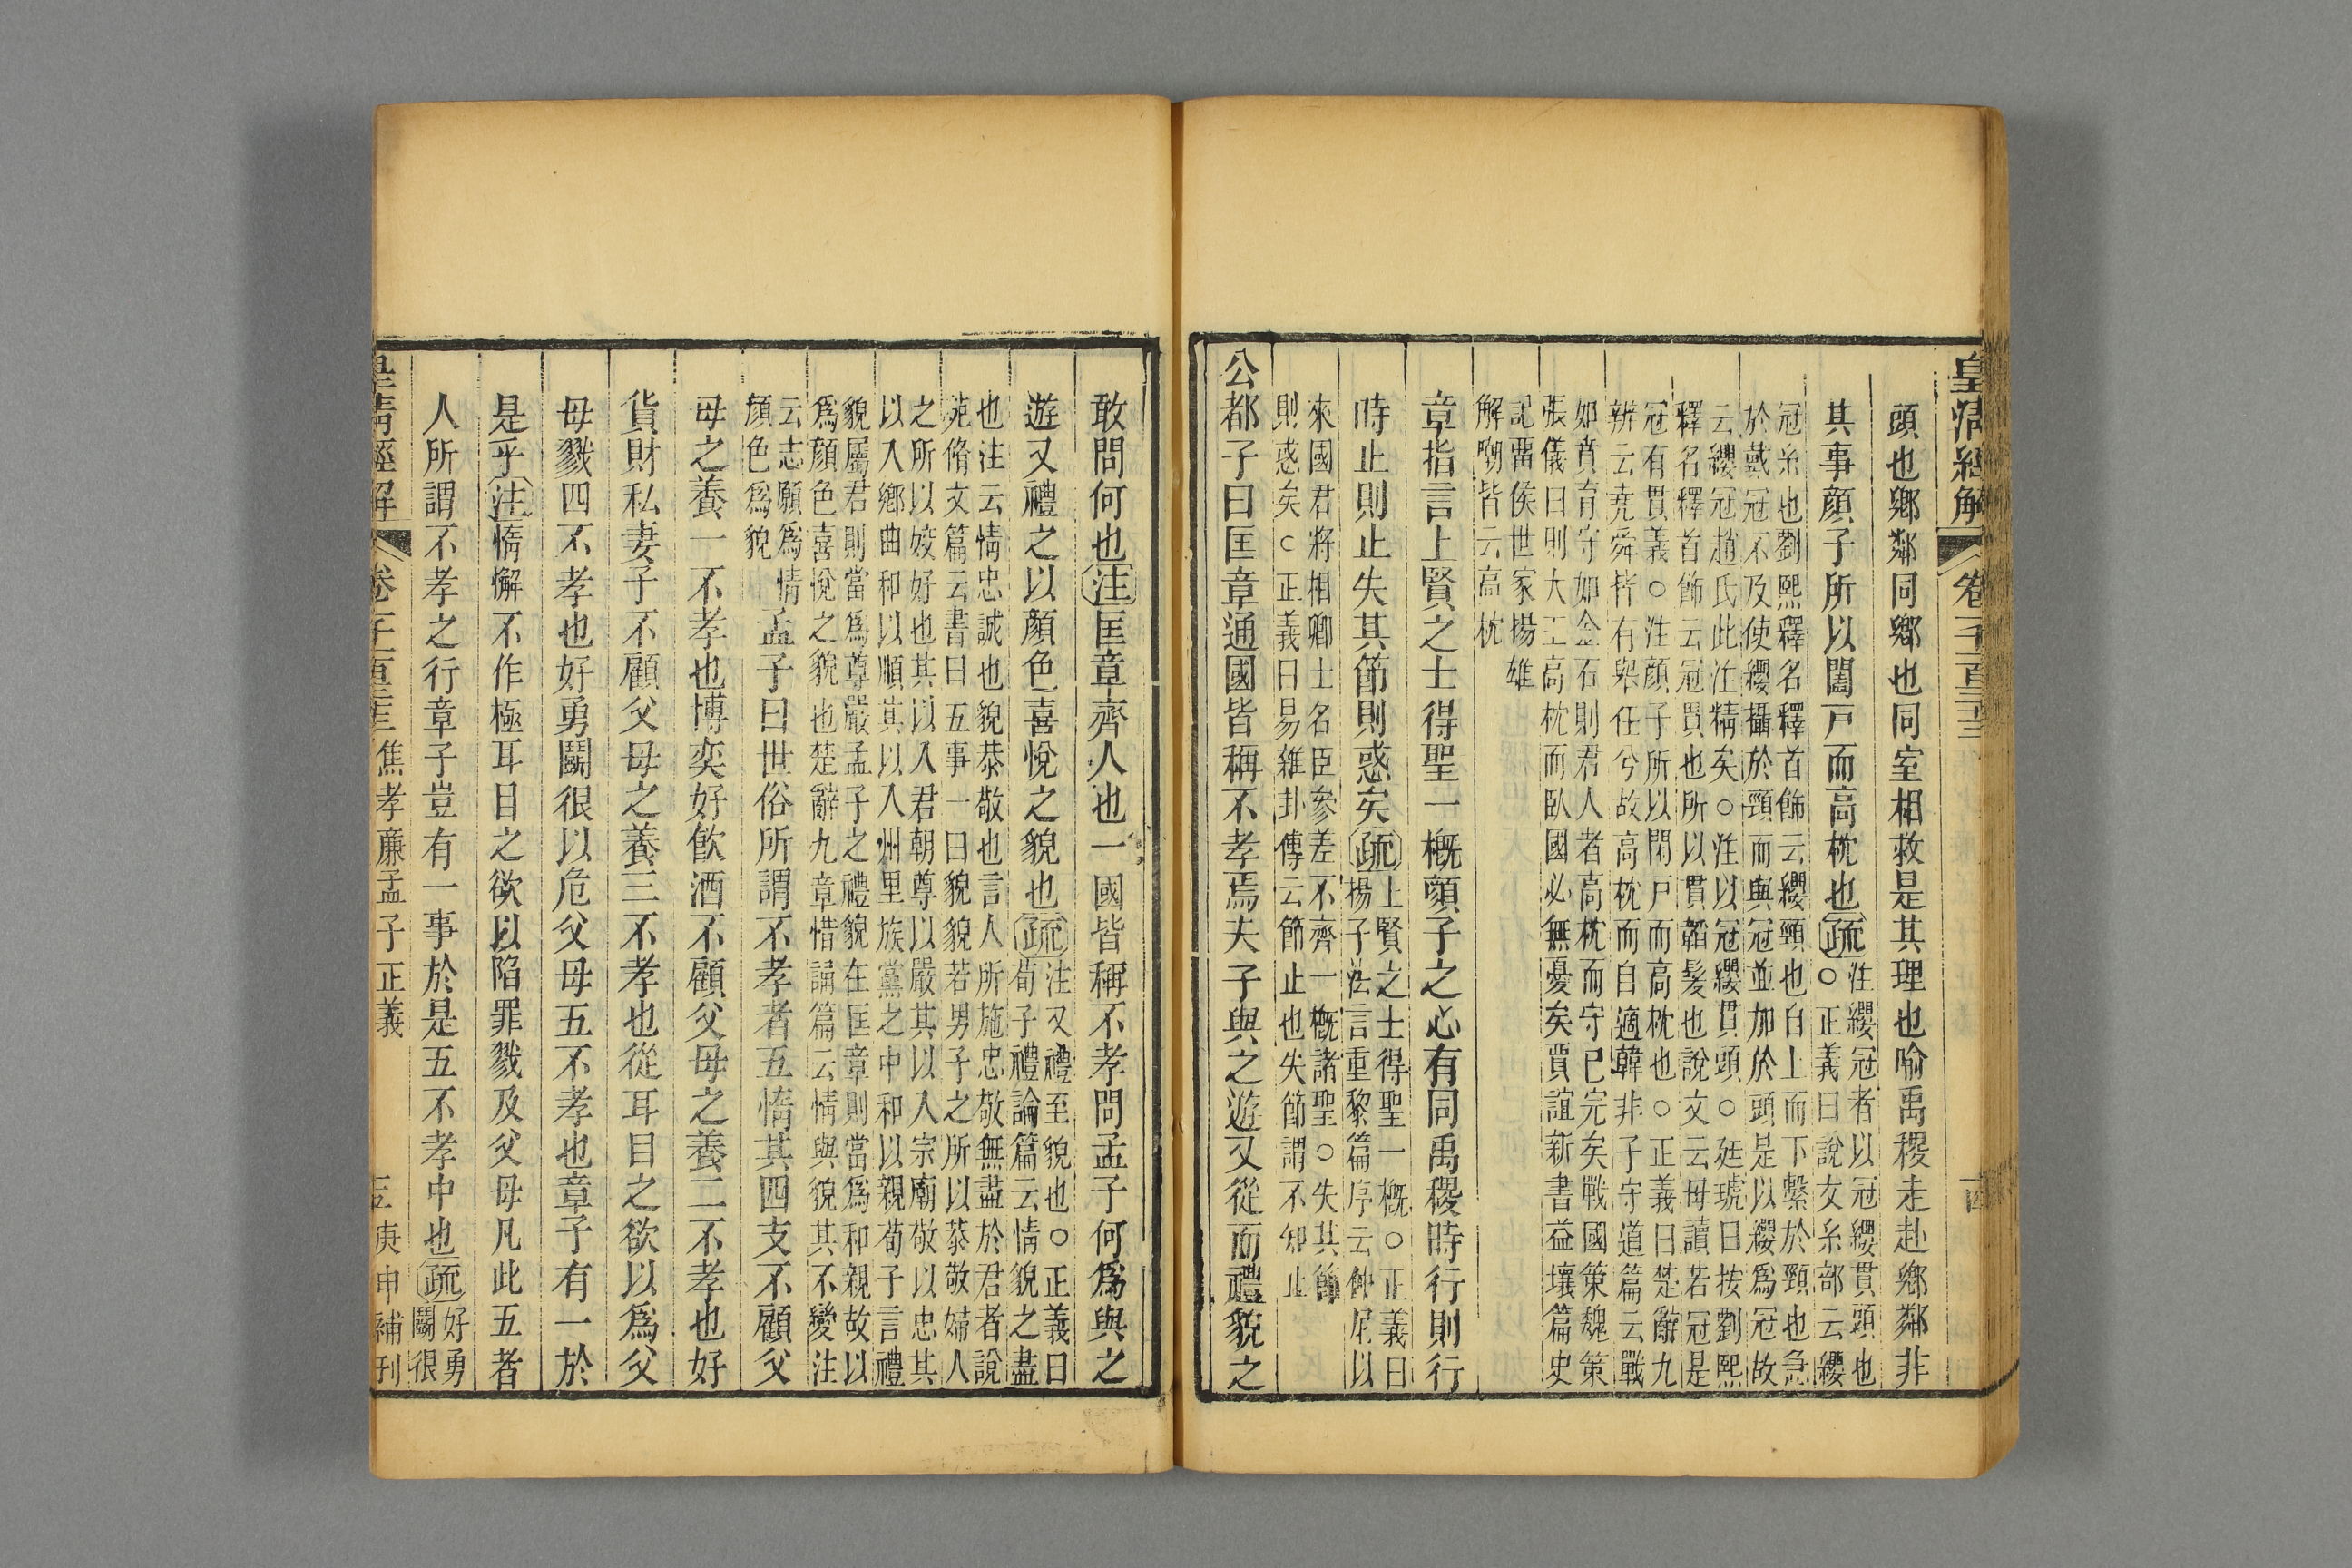 皇清經解 卷一千一百三十三
頭也鄉鄰同鄉也同室相救是其理也喻禹稷走赴鄉鄰非
其事顏子所以闔戸而高枕也疏
注纓冠者以冠纓貫頭也
○正義曰說文糸部云纓
冠糸也劉熙釋名釋首飾云纓頸也自上而下繫於頸也急
於戴冠不及使纓攝於頸而與冠並加於頭是以纓爲冠故
云纓冠趙氏此注精矣○注以冠纓貫頭○廷琥曰按劉熙
釋名釋首飾云冠貫也所以貫韜髮也說文云毋讀若冠是
冠有貫義○注顏子所以閉戸而高枕也○正義曰楚辭九
辨云堯舜皆有舉任兮故高枕而自適韓非子守道篇云戰
如賁育守如金石則君人者高枕而守已完矣戰國策魏策
張儀曰則大王高枕而臥國必無憂矣賈誼新書益壤篇史
記留侯世家揚雄
解嘲皆云高枕
章指言上賢之士得聖一槪顏子之心有同禹稷時行則行
時止則止失其節則惑矣疏
上賢之士得聖一槪○正義曰
揚子法言重黎篇序云仲尼以
來國君將相卿士名臣參差不齊一槪諸聖○失其節
則惑矣○正義曰易雜卦傳云節止也失節謂不知止
公都子曰匡章通國皆稱不孝焉夫子與之遊又從而禮貌之
敢問何也注匡章齊人也一國皆稱不孝問孟子何爲與之
遊又禮之以顏色喜悅之貌也疏
注又禮至貌也○正義曰
荀子禮論篇云情貌之盡
也注云情忠誠也貌恭敬也言人所施忠敬無盡於君者說
苑脩文篇云書曰五事一曰貌貌若男子之所以恭敬婦人
之所以姣好也其以入君朝尊以嚴其以入宗廟敬以忠其
以入鄉曲和以順其以入州里族黨之中和以親荀子言禮
貌屬君則當爲尊嚴孟子之禮貌在匡章則當爲和親故以
爲顏色喜悅之貌也楚辭九章惜誦篇云情與貌其不變注
云志願爲情
顏色爲貌
孟子曰世俗所謂不孝者五惰其四支不顧父
母之養一不孝也博奕好飮酒不顧父母之養二不孝也好
貨財私妻子不顧父母之養三不孝也從耳目之欲以爲父
母戮四不孝也好勇鬭很以危父母五不孝也章子有一於
是乎注惰懈不作極耳目之欲以陷罪戮及父母凡此五者
人所謂不孝之行章子豈有一事於是五不孝中也疏
好勇
鬭很
皇清經解 卷一千一百三十三 焦孝廉孟子正義 庚申補刊